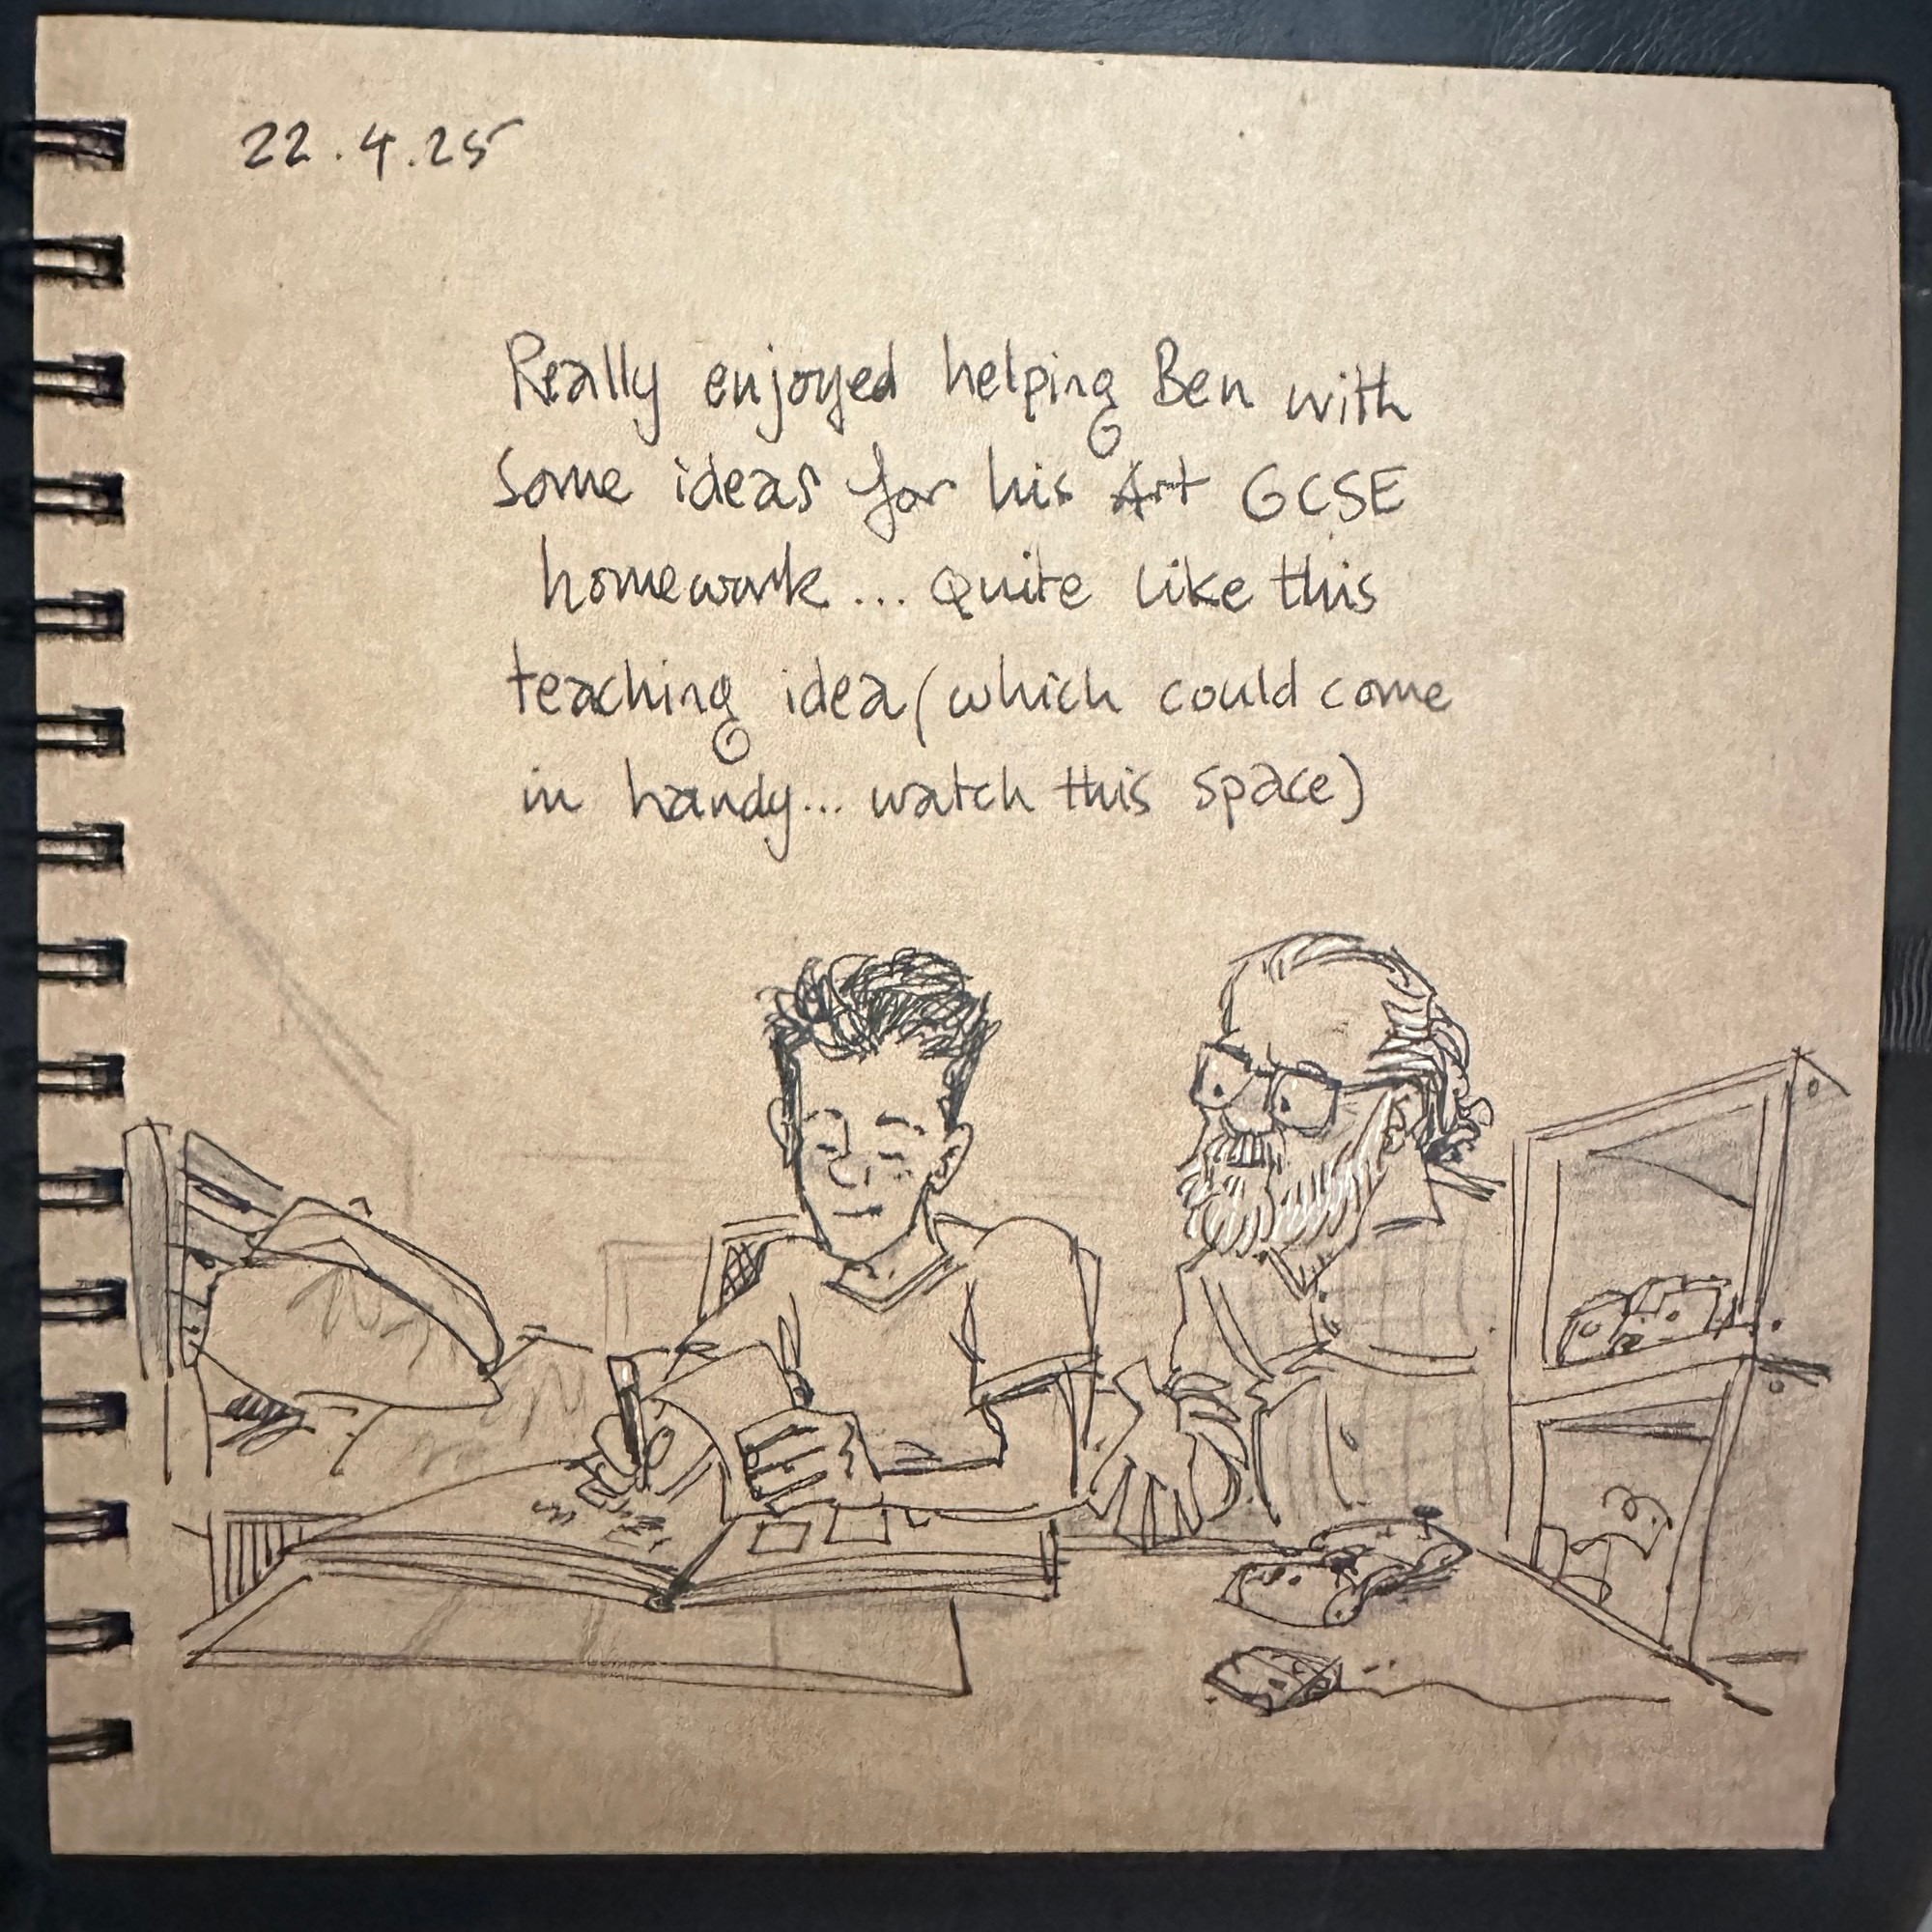 22.4.25
Really enjoyed helping Ben with
some ideas for his Art GCSE
homework... Quite like this
teaching idea (which could come
in handy... watch this space)